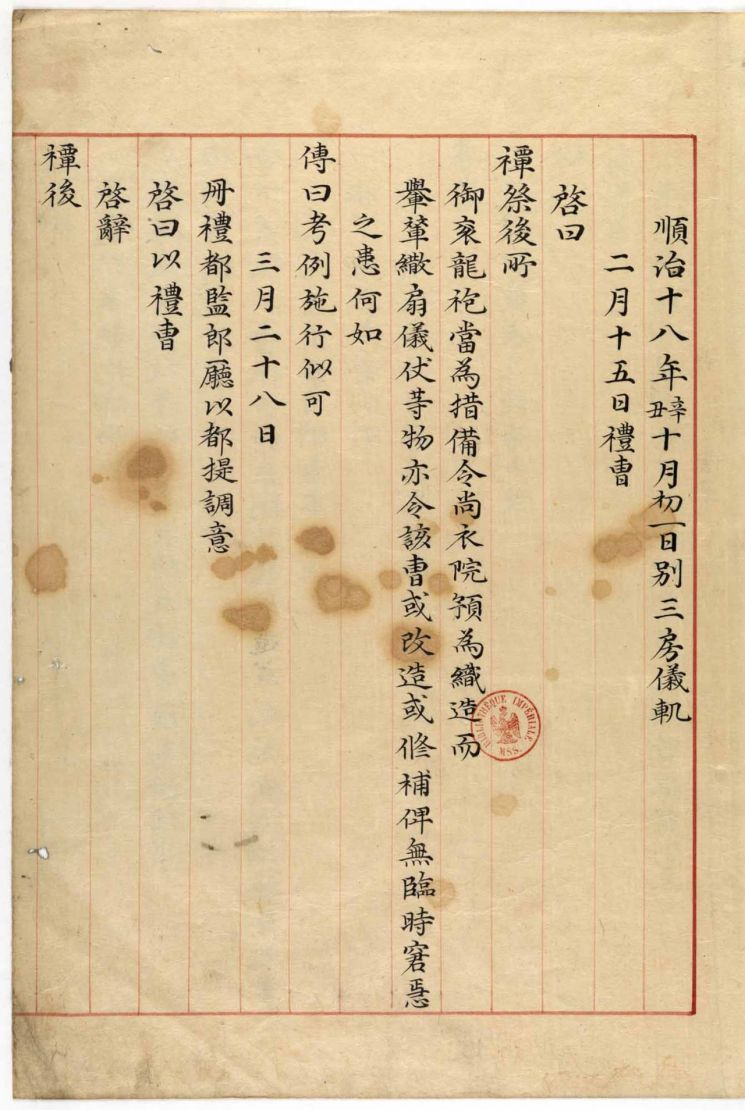 順治十八年辛丑十月初一日别三房儀軌
二月十五日禮曺
啓曰
禫祭後所
御衮龍袍當為措備令尚衣院預為織造而
轝輦繖扇儀仗等物亦令該曺或改造或修補俾無臨時窘
之患何如
傳曰考例施行似可
三月二十八日
冊禮都監郎廳以都提調意
啓曰以禮曺
啓辭
禫後
BIBLIOTHÈQUE IMPÉRIALE MSS.